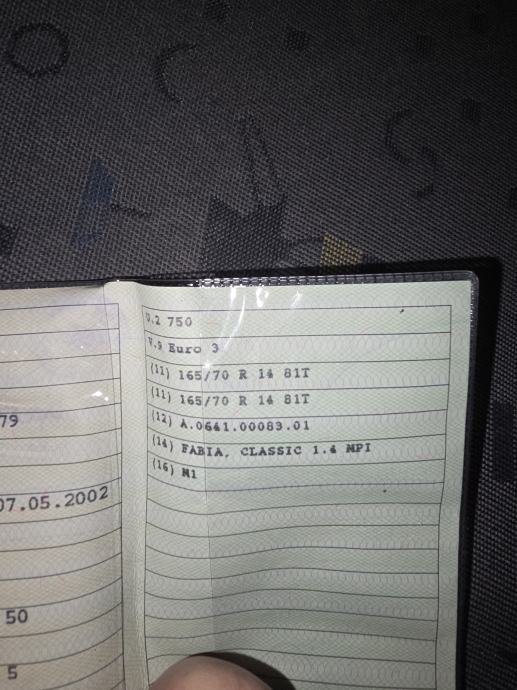 U.2 750
V.9 Euro 3
(11) 165/70 R 14 81T
(11) 165/70 R 14 81T
79
(12) A.0641.00083.01
(14) FABIA, CLASSIC 1.4 MPI
(16) M1
07.05.2002
50
5